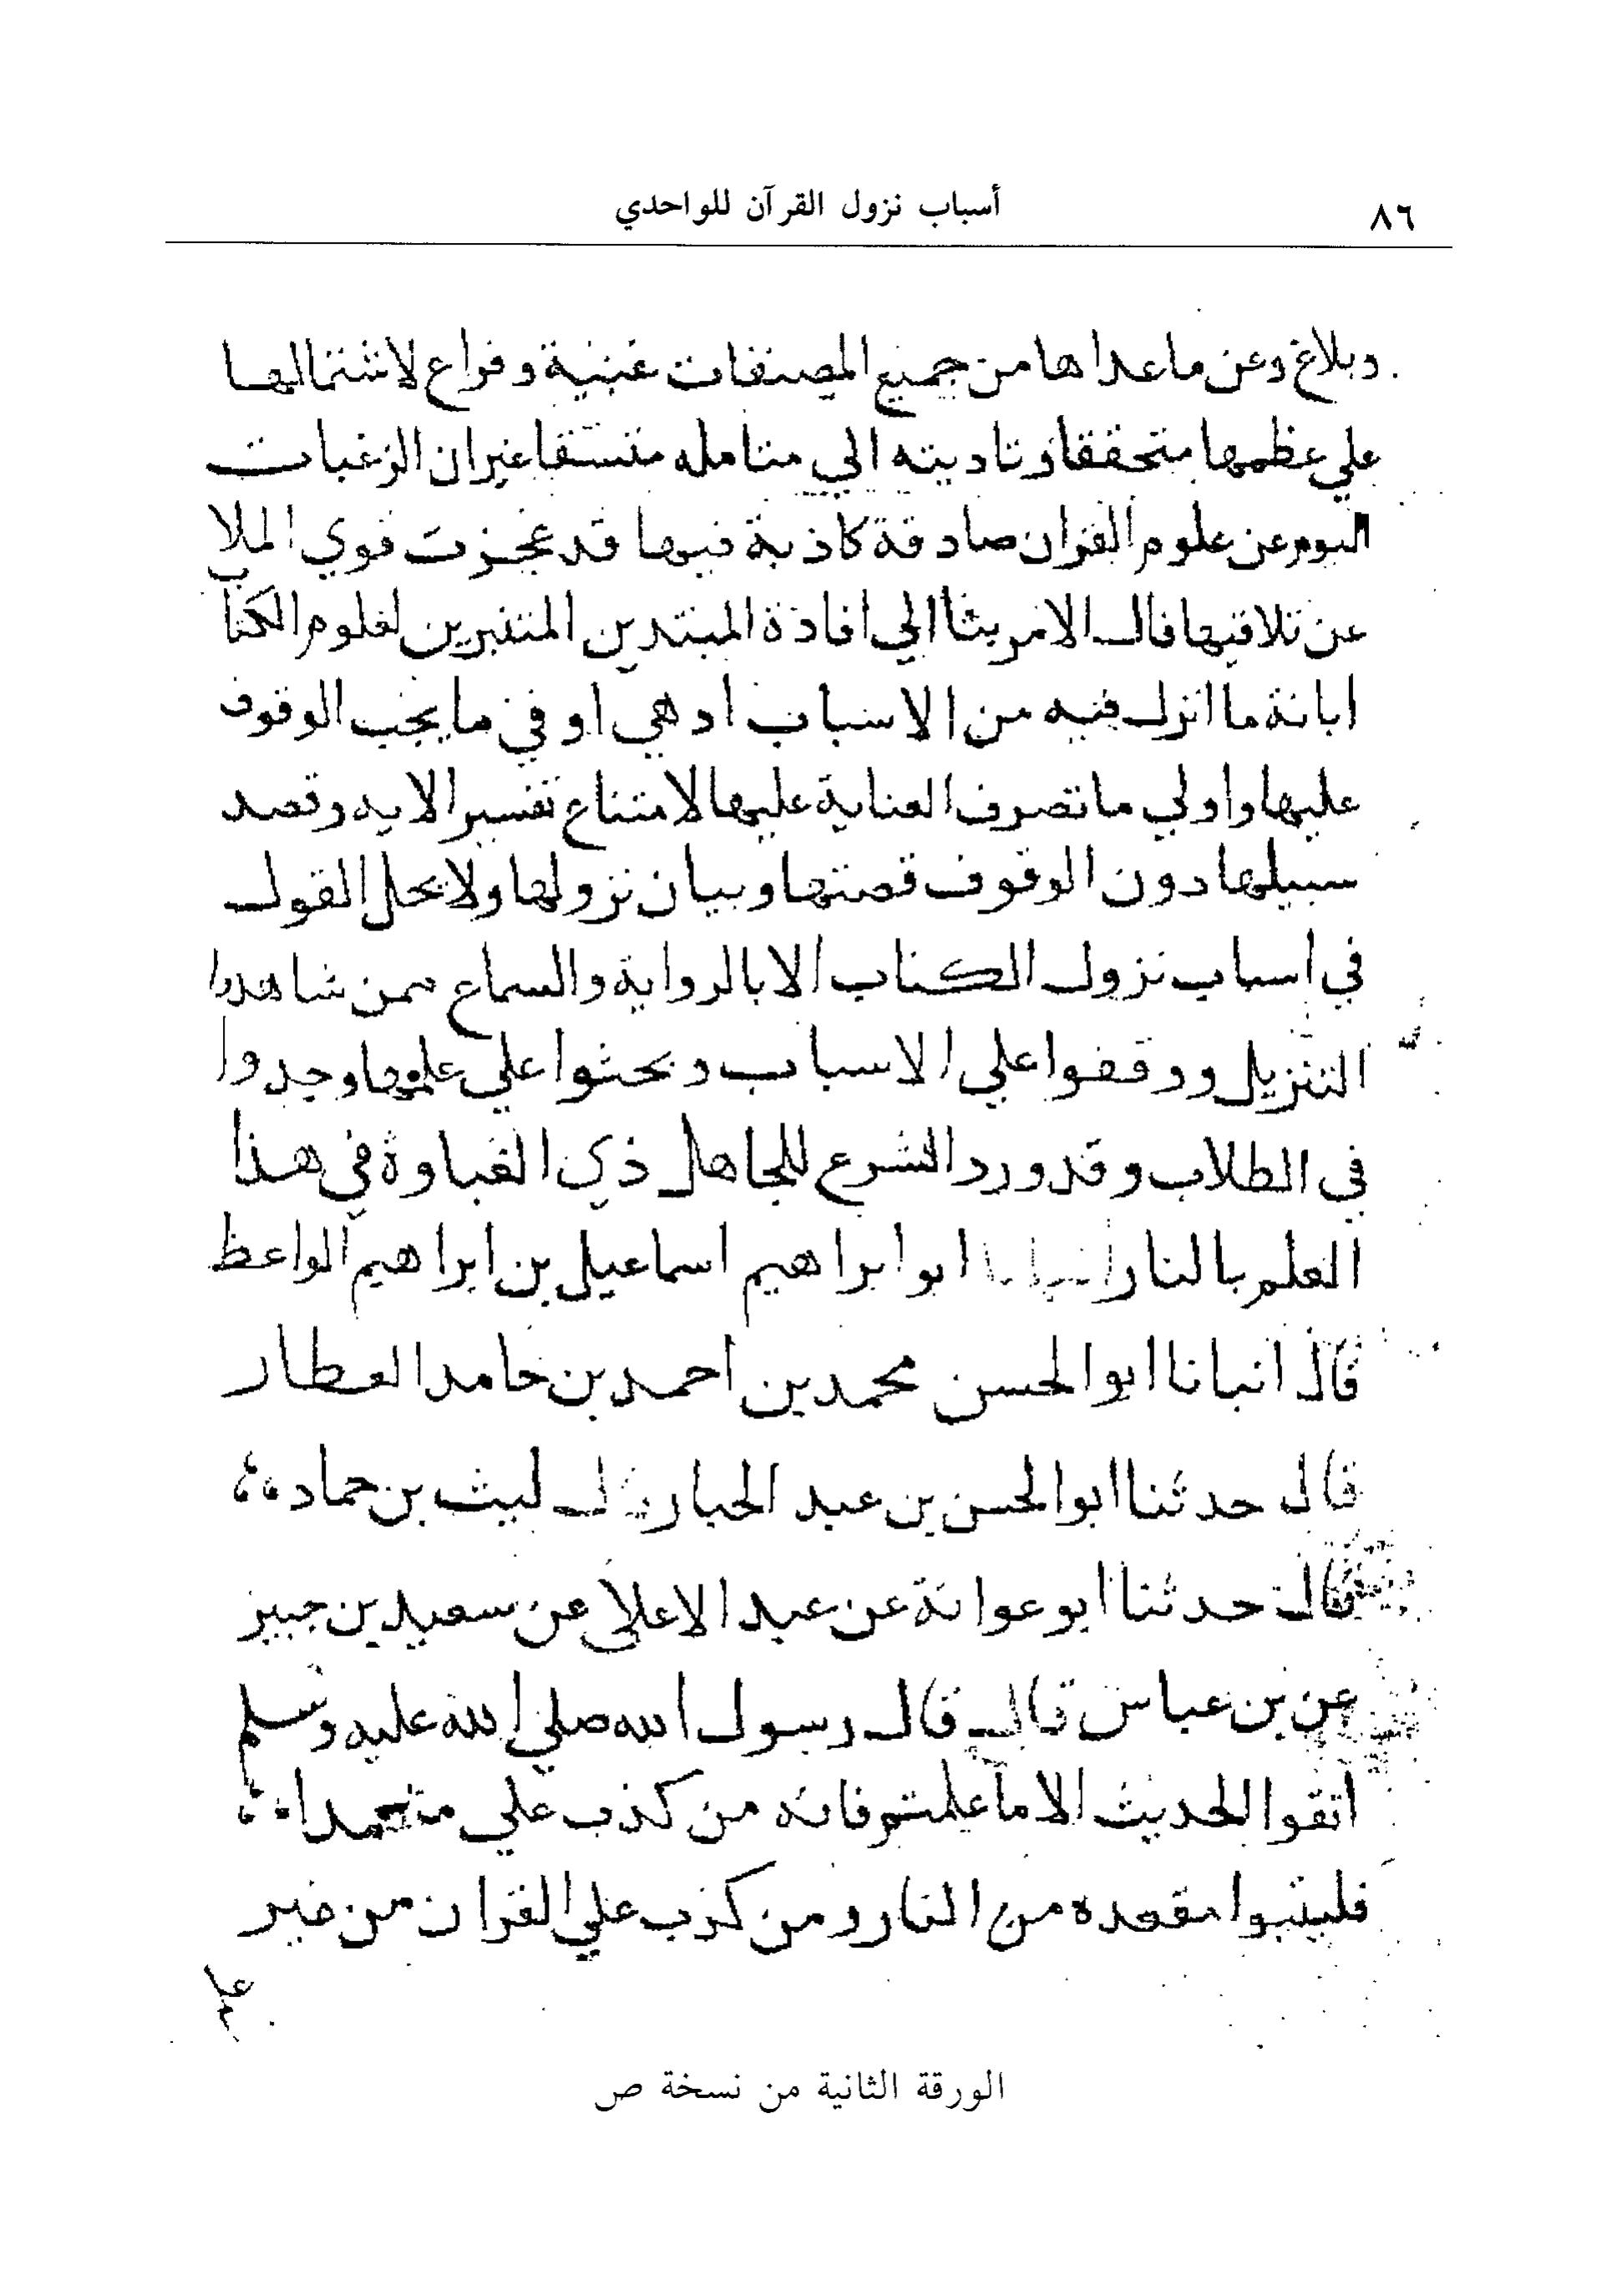 ٨٦
أسباب نزول القرآن للواحدي
وبلاغ وعن ماعداها من جميع المصنفات غنية وفراغ لاشتمالها
علي عظمها متحققا وتاديته الي متامله متسقا غيران الرغبات
اليوم عن علوم القران صادقة كاذبة فيها قد عجزت قوي الملا
عن تلافيها فال الامر بنا الي افادة المبتدين المتنبرين لعلوم الكتا
ب
ابانة ما انزل فيه من الاسباب اد هي او في ما يجب الوقوف
عليها واولي ما تصرف العناية عليها لامتناع تفسير الايه وقصد
سبيلها دون الوقوف قصتها وبيان نزولها ولا يحل القول
في اسباب نزول الكتاب الا بالرواية والسماع ممن شاهدوا
التنزيل ووقفوا علي الاسباب وبحثوا علي علومها وجدوا
في الطلاب وقد ورد الشرع للجاهل ذي الغباوة في هذا
العلم بالنار ابو ابراهيم اسماعيل بن ابراهيم الواعظ
قال انبانا ابو الحسن محمد بن احمد بن حامد العطار
قال حدثنا ابو الحسن بن عبد الجبار قال ليث بن حماد
قال حدثنا ابو عوانة عن عبد الاعلا عن سعيد بن جبير
عن بن عباس قال قال رسول الله صلي الله عليه وسلم
اتقوا الحديث الا ما علمتم فانه من كذب علي متعمدا
فليتبوا مقعده من النار ومن كذب علي القران من غير
علم
الورقة الثانية من نسخة ص